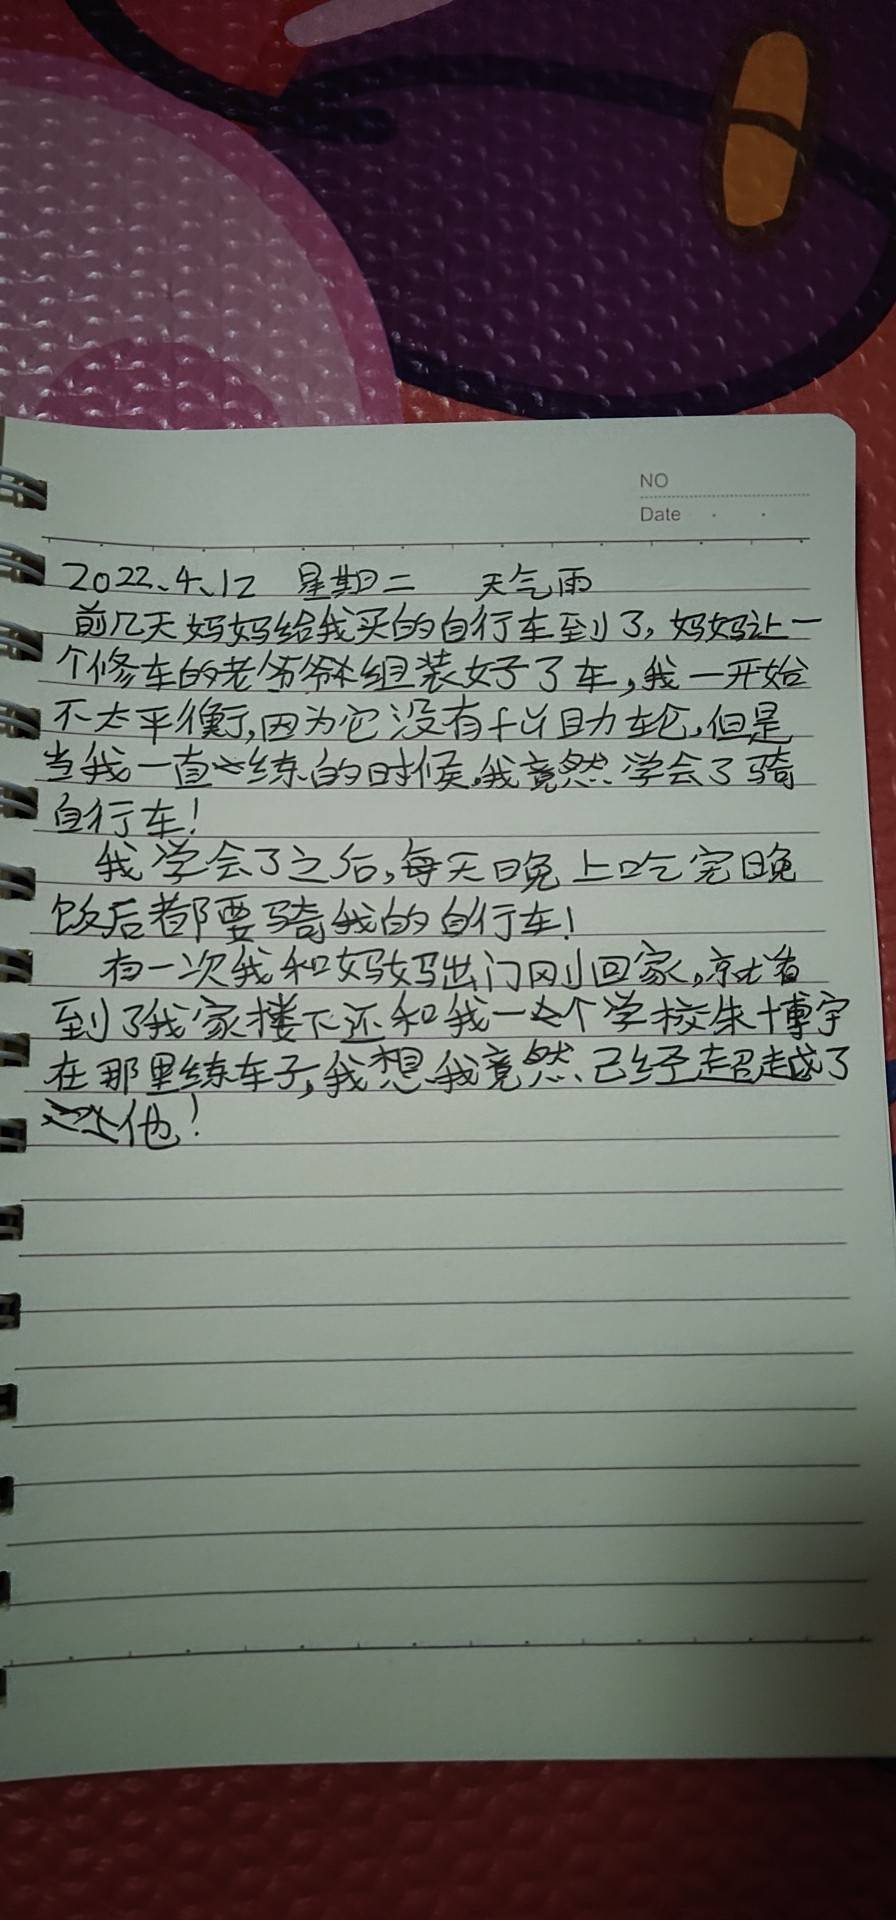 NO
Date
2022、4、12 星期二 天气雨
前几天妈妈给我买的自行车到了,妈妈让一
个修车的老爷爷组装好了车,我一开始
不太平衡,因为它没有什么助力轮,但是
当我一直练的时候,我竟然学会了骑
自行车!
我学会了之后,每天晚上吃完晚
饭后都要骑我的自行车!
有一次我和妈妈出门刚回家,就看
到了我家楼下还和我一个学校朱博宇
在那里练车子,我想我竟然已经超越了
他!